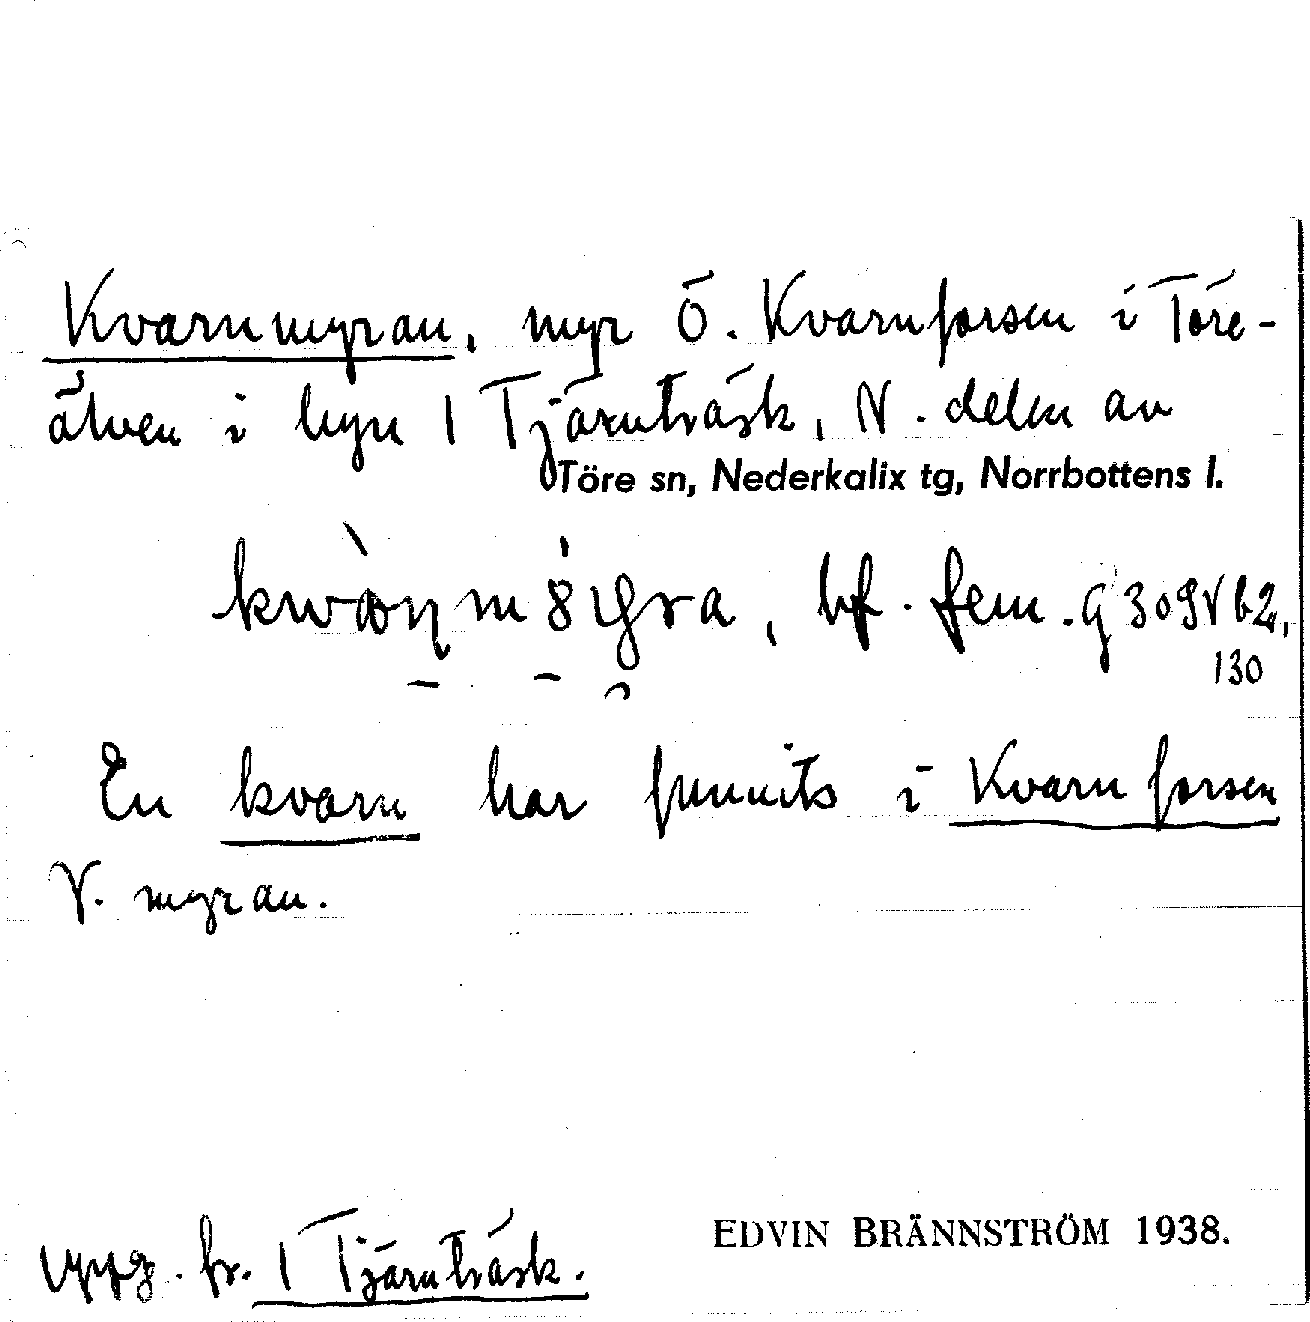 Kvarnmyran, myr Ö. Kvarnforsen i Töre-
älven i byn 1 Tjärnträsk, N. delen av
Töre sn, Nederkalix tg, Norrbottens l.
bf. fem.
130
En kvarn har funnits i Kvarnforsen
V. myran.
Uppg. fr. 1 Tjärnträsk.
EDVIN BRÄNNSTRÖM 1938.